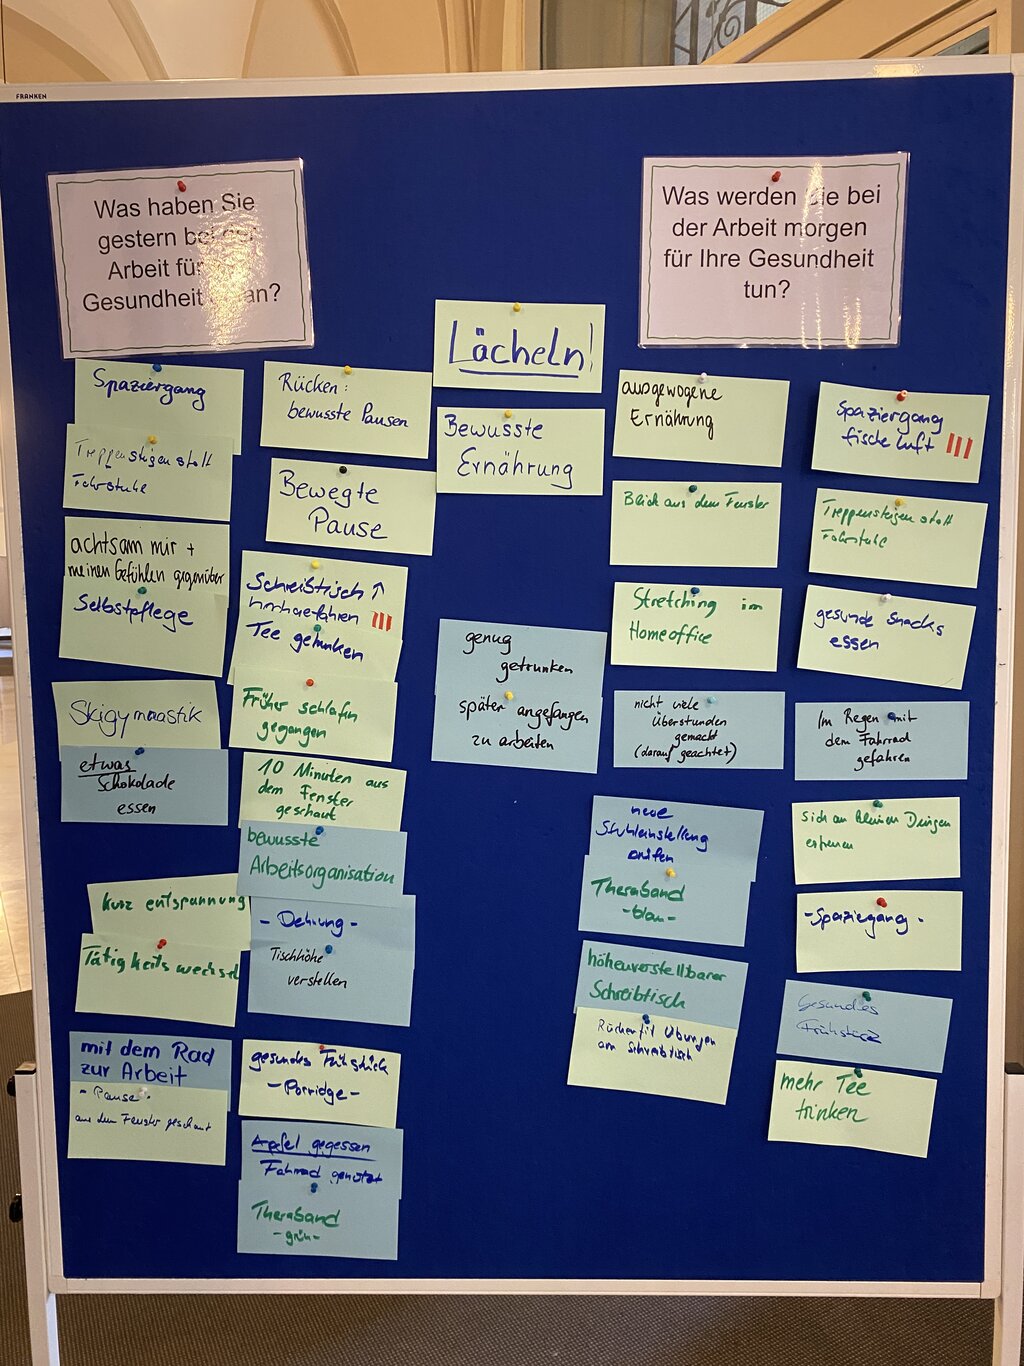 FRANKEN
Was haben Sie
gestern bei der
Arbeit für
Gesundheit
Was werden Sie bei
der Arbeit morgen
für Ihre Gesundheit
tun?
Lächeln!
Bewusste
Ernährung
Spaziergang
Treppensteigen statt
Fahrstuhl
achtsam mir +
meinen Gefühlen gegenüber
Selbstpflege
Skigymnastik
etwas
Schokolade
essen
kurz entspannung
Tätigkeitswechsel
mit dem Rad
zur Arbeit
- Pause -
aus dem Fenster geschaut
Rücken:
bewusste Pausen
Bewegte
Pause
Schreibtisch ↑
hochgefahren III
Tee getrunken
Früher schlafen
gegangen
10 Minuten aus
dem Fenster
geschaut
bewusste
Arbeitsorganisation
- Dehnung -
Tischhöhe
verstellen
gesundes Frühstück
- Porridge -
Apfel gegessen
Fahrrad genutzt
Theraband
- grün -
genug
getrunken
später angefangen
zu arbeiten
ausgewogene
Ernährung
Blick aus dem Fenster
Stretching im
Homeoffice
nicht viele
Überstunden
gemacht
(darauf geachtet)
neue
Stuhleinstellung
prüfen
Theraband
- blau -
höhenverstellbarer
Schreibtisch
Rückenfit Übungen
am Schreibtisch
Spaziergang
fische Luft III
Treppensteigen statt
Fahrstuhl
gesunde Snacks
essen
Im Regen mit
dem Fahrrad
gefahren
sich an kleinen Dingen
erfreuen
- Spaziergang -
Gesundes
Frühstück
mehr Tee
trinken